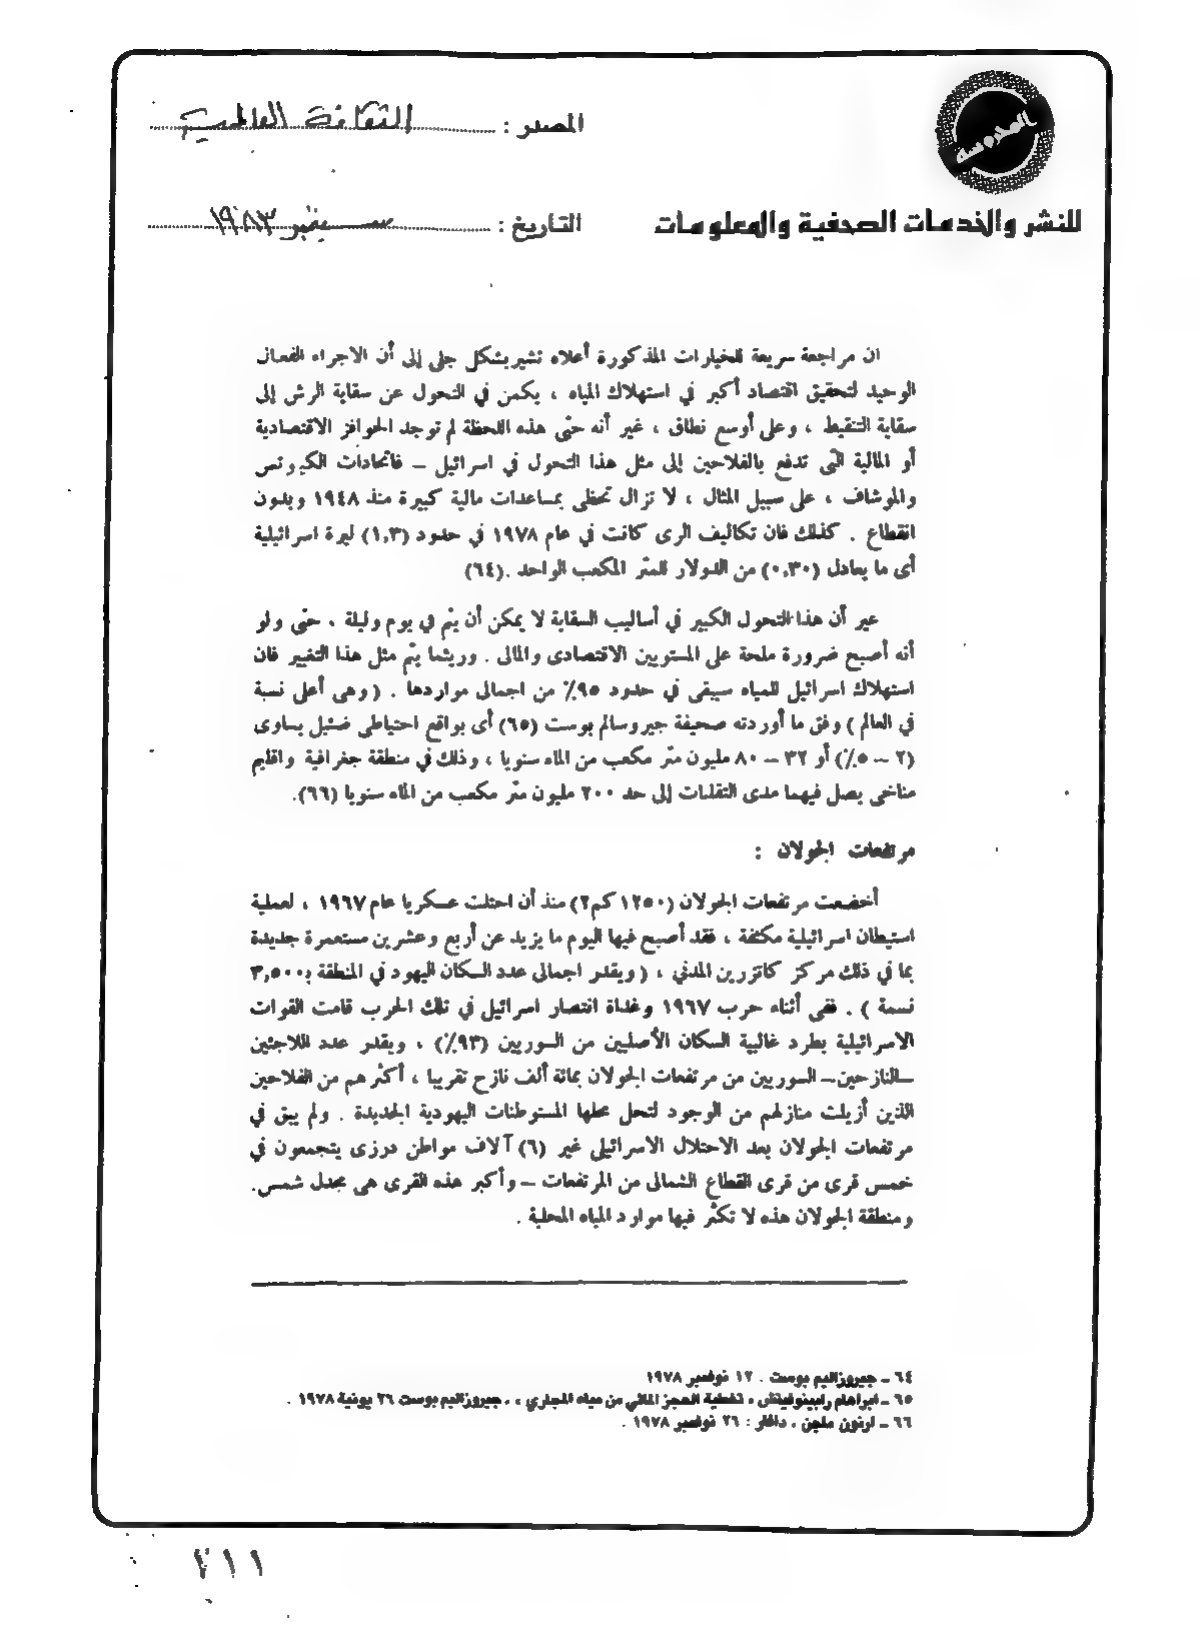 المحروسة
المصدر : الثقافة العالمية
للنشر والخدمات الصحفية والمعلومات
التاريخ : سبتمبر ١٩٨٣
ان مراجعة سريعة للخيارات المذكورة أعلاه تشير بشكل جلى إلى أن الاجراء الفعال
الوحيد لتحقيق اقتصاد أكبر في استهلاك المياه ، يكمن في التحول عن سقاية الرش إلى
سقاية التنقيط ، وعلى أوسع نطاق ، غير أنه حتّى هذه اللحظة لم توجد الحوافز الاقتصادية
أو المالية التّى تدفع بالفلاحين إلى مثل هذا التحول في اسرائيل – فاتحادات الكيبوتس
والموشاف ، على سبيل المثال ، لا تزال تحظى بمساعدات مالية كبيرة منذ ١٩٤٨ وبدون
انقطاع . كذلك فان تكاليف الرى كانت في عام ١٩٧٨ في حدود (١,٣) ليرة اسرائيلية
أى ما يعادل (٠,٣٠) من الدولار للمتر المكعب الواحد .(٦٤)
غير أن هذا التحول الكبير في أساليب السقاية لا يمكن أن يتّم في يوم وليلة ، حتّى ولو
أنه أصبح ضرورة ملحة على المستويين الاقتصادى والمالى . وريثما يتّم مثل هذا التغيير فان
استهلاك اسرائيل للمياه سيبقى في حدود ٩٥٪ من اجمالى مواردها . ( وهى أعلى نسبة
في العالم ) وفق ما أوردته صحيفة جيروسالم بوست (٦٥) أى بواقع احتياطي ضئيل يساوى
(٢ – ٥٪) أو ٣٢ – ٨٠ مليون متر مكعب من الماء سنويا ، وذلك في منطقة جغرافية واقليم
مناخى يصل فيهما مدى التقلبات إلى حد ٢٠٠ مليون متر مكعب من الماء سنويا (٦٦).
مرتفعات الجولان :
أخضعت مرتفعات الجولان (١٢٥٠ كم٢) منذ أن احتلت عسكريا عام ١٩٦٧ ، لعملية
استيطان اسرائيلية مكثفة ، فقد أصبح فيها اليوم ما يزيد عن أربع وعشرين مستعمرة جديدة
بما في ذلك مركز كاتزرين المدني ، ( ويقدر اجمالى عدد السكان اليهود في المنطقة بـ٣,٥٠٠
نسمة ) . ففى أثناء حرب ١٩٦٧ وغداة انتصار اسرائيل في تلك الحرب قامت القوات
الاسرائيلية بطرد غالبية السكان الأصليين من السوريين (٩٣٪) ، ويقدر عدد اللاجئين
–النازحين– السوريين من مرتفعات الجولان بمائة ألف نازح تقريبا ، أكثرهم من الفلاحين
اللذين أزيلت منازلهم من الوجود لتحل محلها المستوطنات اليهودية الجديدة . ولم يبق في
مرتفعات الجولان بعد الاحتلال الاسرائيلى غير (٦) آلاف مواطن درزى يتجمعون في
خمس قرى من قرى القطاع الشمالى من المرتفعات – وأكبر هذه القرى هى مجدل شمس.
ومنطقة الجولان هذه لا تكثر فيها موارد المياه المحلية .
٦٤ – جيروزاليم بوست . ١٢ نوفمبر ١٩٧٨
٦٥ – ابراهام رابينوفيتش ، تغطية العجز المائي من مياه المجاري ، . جيروزاليم بوست ٢٦ يونية ١٩٧٨ .
٦٦ – ارنون ماجن ، دافار : ٢٦ نوفمبر ١٩٧٨ .
٢١١